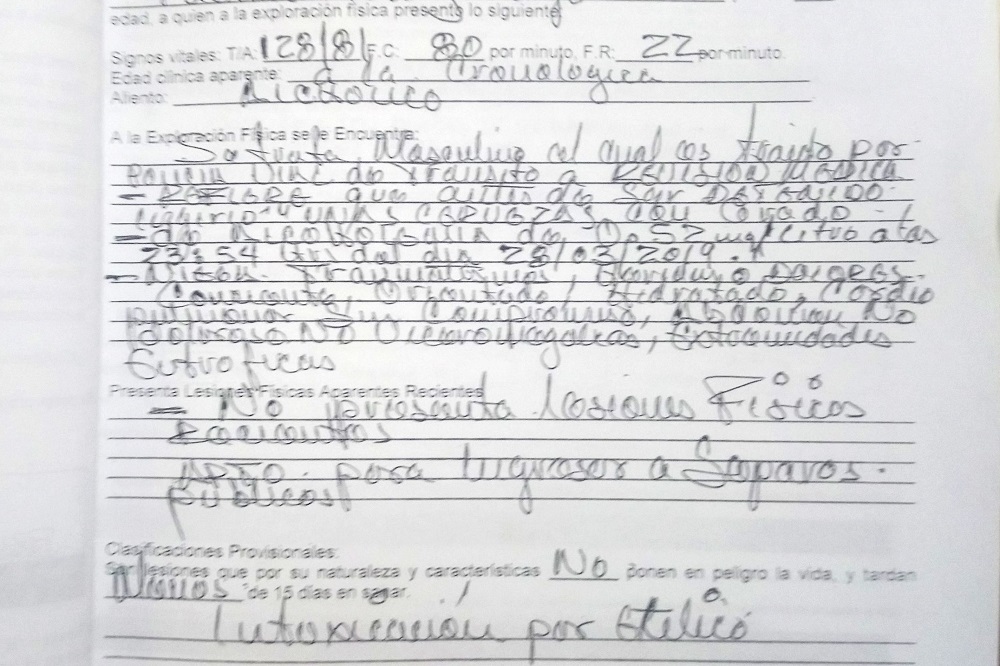 edad, a quien a la exploración física presenta lo siguiente
Signos vitales: T/A: 128/81 F.C: 80 por minuto, F.R: 22 por minuto.
Edad clínica aparente: a la Cronologica
Aliento: Alcholico
A la Exploración Física se le Encuentra:
Se trata Masculino el cual es traido por
Policia de transito a Revision Medica
- REFIERE que antes de Ser Detenido
ingirio 4 unas CERVEZAS, con Grado - 1
- de Alcoholemia de 0.52 mg/Litro a las
23:54 Hrs del dia 28/03/2019.
Traumatismos,
Conciente, Orientado, Hidratado, Cardio
pulmonar Sin Compromiso, Abdomen No
doloroso No Visceromegalias, Extremidades
Eutroficas
Presenta Lesiones Físicas Aparentes Recientes
- No presenta lesiones Fisicas
Recientes
APTO para Ingresar a Separos
publicos
Clasificaciones Provisionales:
Son lesiones que por su naturaleza y características No ponen en peligro la vida, y tardan
Menos de 15 días en sanar.
Intoxicación por Etilico